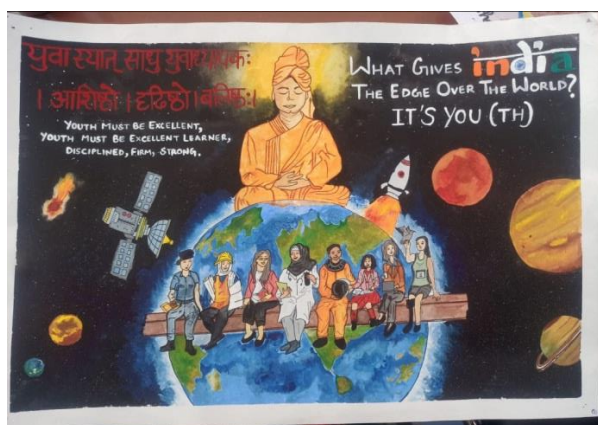 युवा स्यात् साधु युवाध्यायकः
। आशिष्ठो । द्रढिष्ठो । बलिष्ठः।
YOUTH MUST BE EXCELLENT,
YOUTH MUST BE EXCELLENT LEARNER,
DISCIPLINED, FIRM, STRONG.
WHAT GIVES india
THE EDGE OVER THE WORLD?
IT'S YOU (TH)